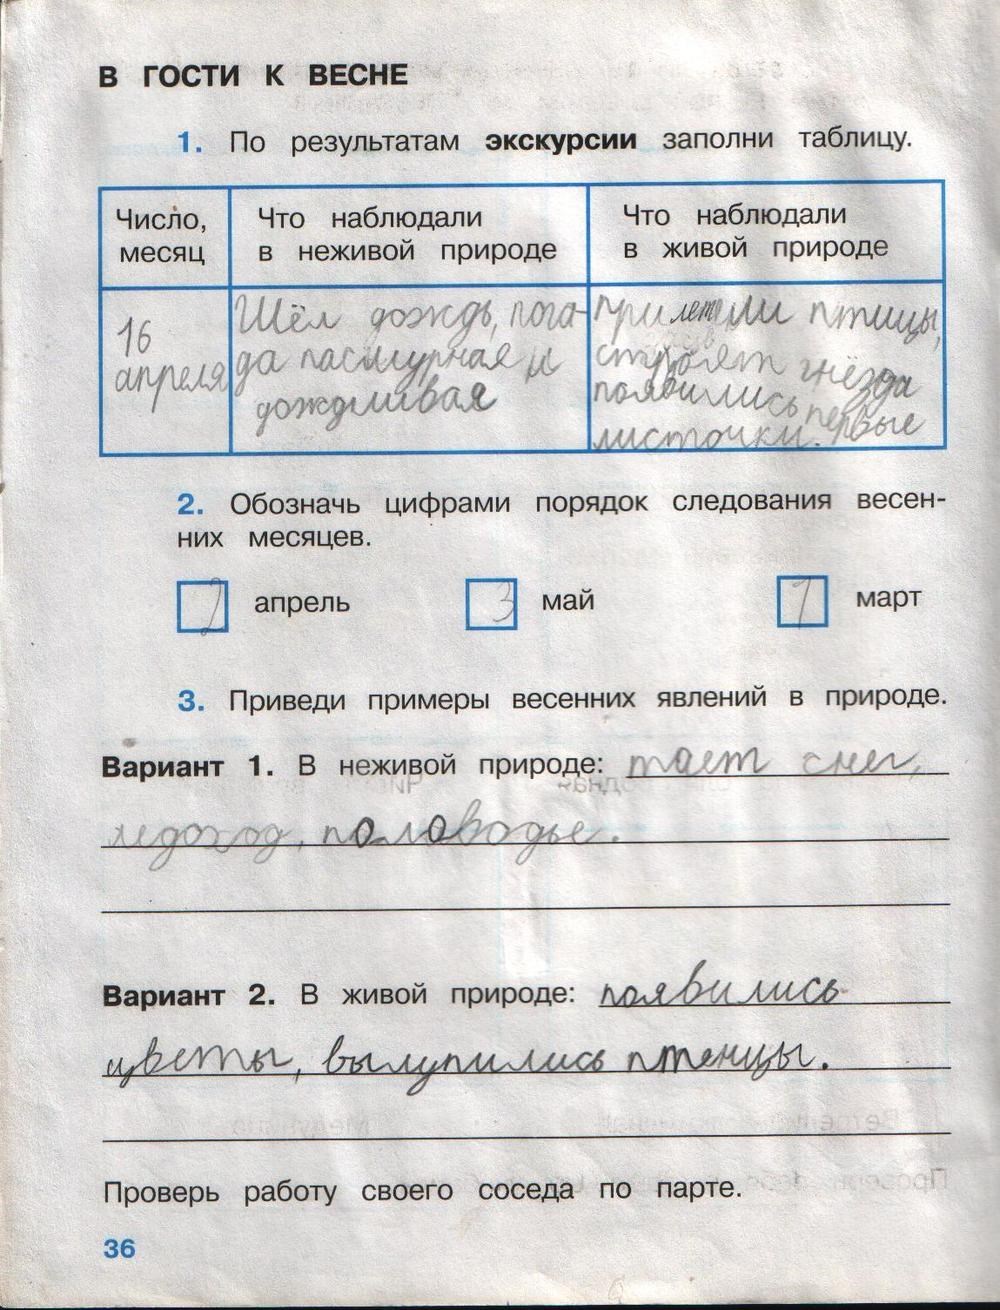 В ГОСТИ К ВЕСНЕ
1. По результатам экскурсии заполни таблицу.
Число, месяц
Что наблюдали в неживой природе
Что наблюдали в живой природе
16
апреля
Шёл дождь, пога-
да пасмурная и
дождливая
Прилетели птицы,
строят гнёзда
появились первые
листочки.
2. Обозначь цифрами порядок следования весен-
них месяцев.
2 апрель 3 май 1 март
3. Приведи примеры весенних явлений в природе.
Вариант 1. В неживой природе: тает снег,
ледоход, половодье.
Вариант 2. В живой природе: появились
цветы, вылупились птенцы.
Проверь работу своего соседа по парте.
36